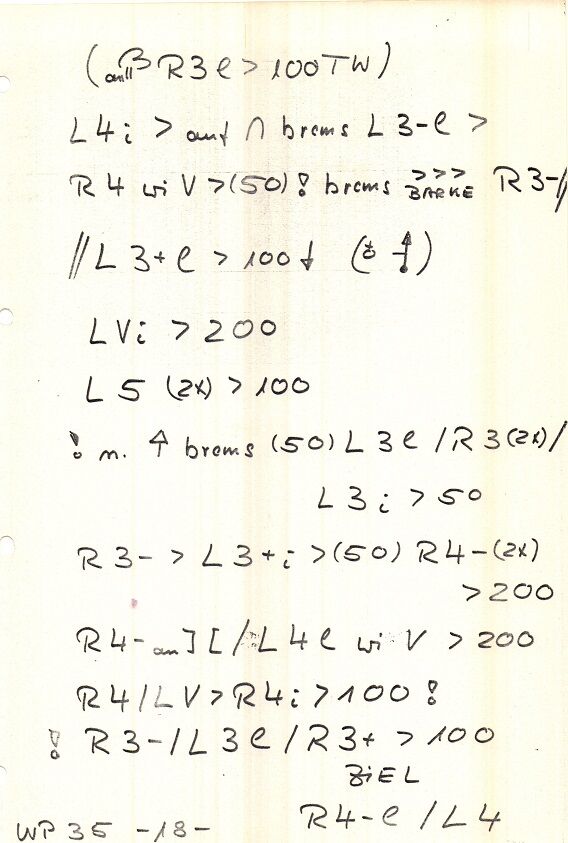 (außβ R3 e > 100 TW)
L4 i > auf ∩ brems L 3-e >
R4 wi V > (50) ! brems >>> BARKE R3-//
//L 3+ e > 100 ↓ ( )
LVi > 200
L5 (2x) > 100
! n. ↑ brems (50) L 3 e / R3 (2x) /
L 3 i > 50
R3- > L3+ i > (50) R4- (2x)
> 200
R4- an ] [ / L4 e wi V > 200
R4 / LV > R4 i > 100 !
! R3- / L3 e / R3+ > 100
ZIEL
R4-e / L4
WP 35 -18-